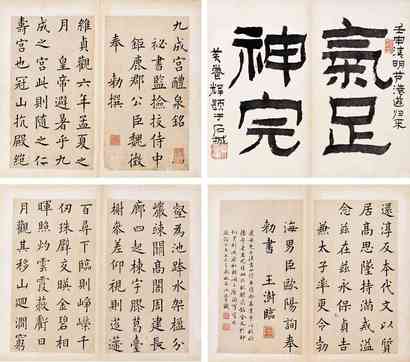 氣足
神完
九成宮醴泉銘
祕書監檢挍侍中
鉅鹿郡公臣魏徵
奉 勑撰
維貞觀六年孟夏之
月皇帝避暑乎九
成之宮此則隨之仁
壽宮也冠山抗殿絕
壑為池跨水架楹分
巖竦闕高閣周建長
廊四起棟宇膠葛臺
榭參差仰視則迢遰
百尋下臨則崢嶸千
仞珠壁交映金碧相
暉照灼雲霞蔽虧日
月觀其移山迴澗窮
還淳反本代文以質
居高思墜持滿戒溢
念茲在茲永保貞吉
兼太子率更令勃
海男臣歐陽詢奉
勑書 王澍臨